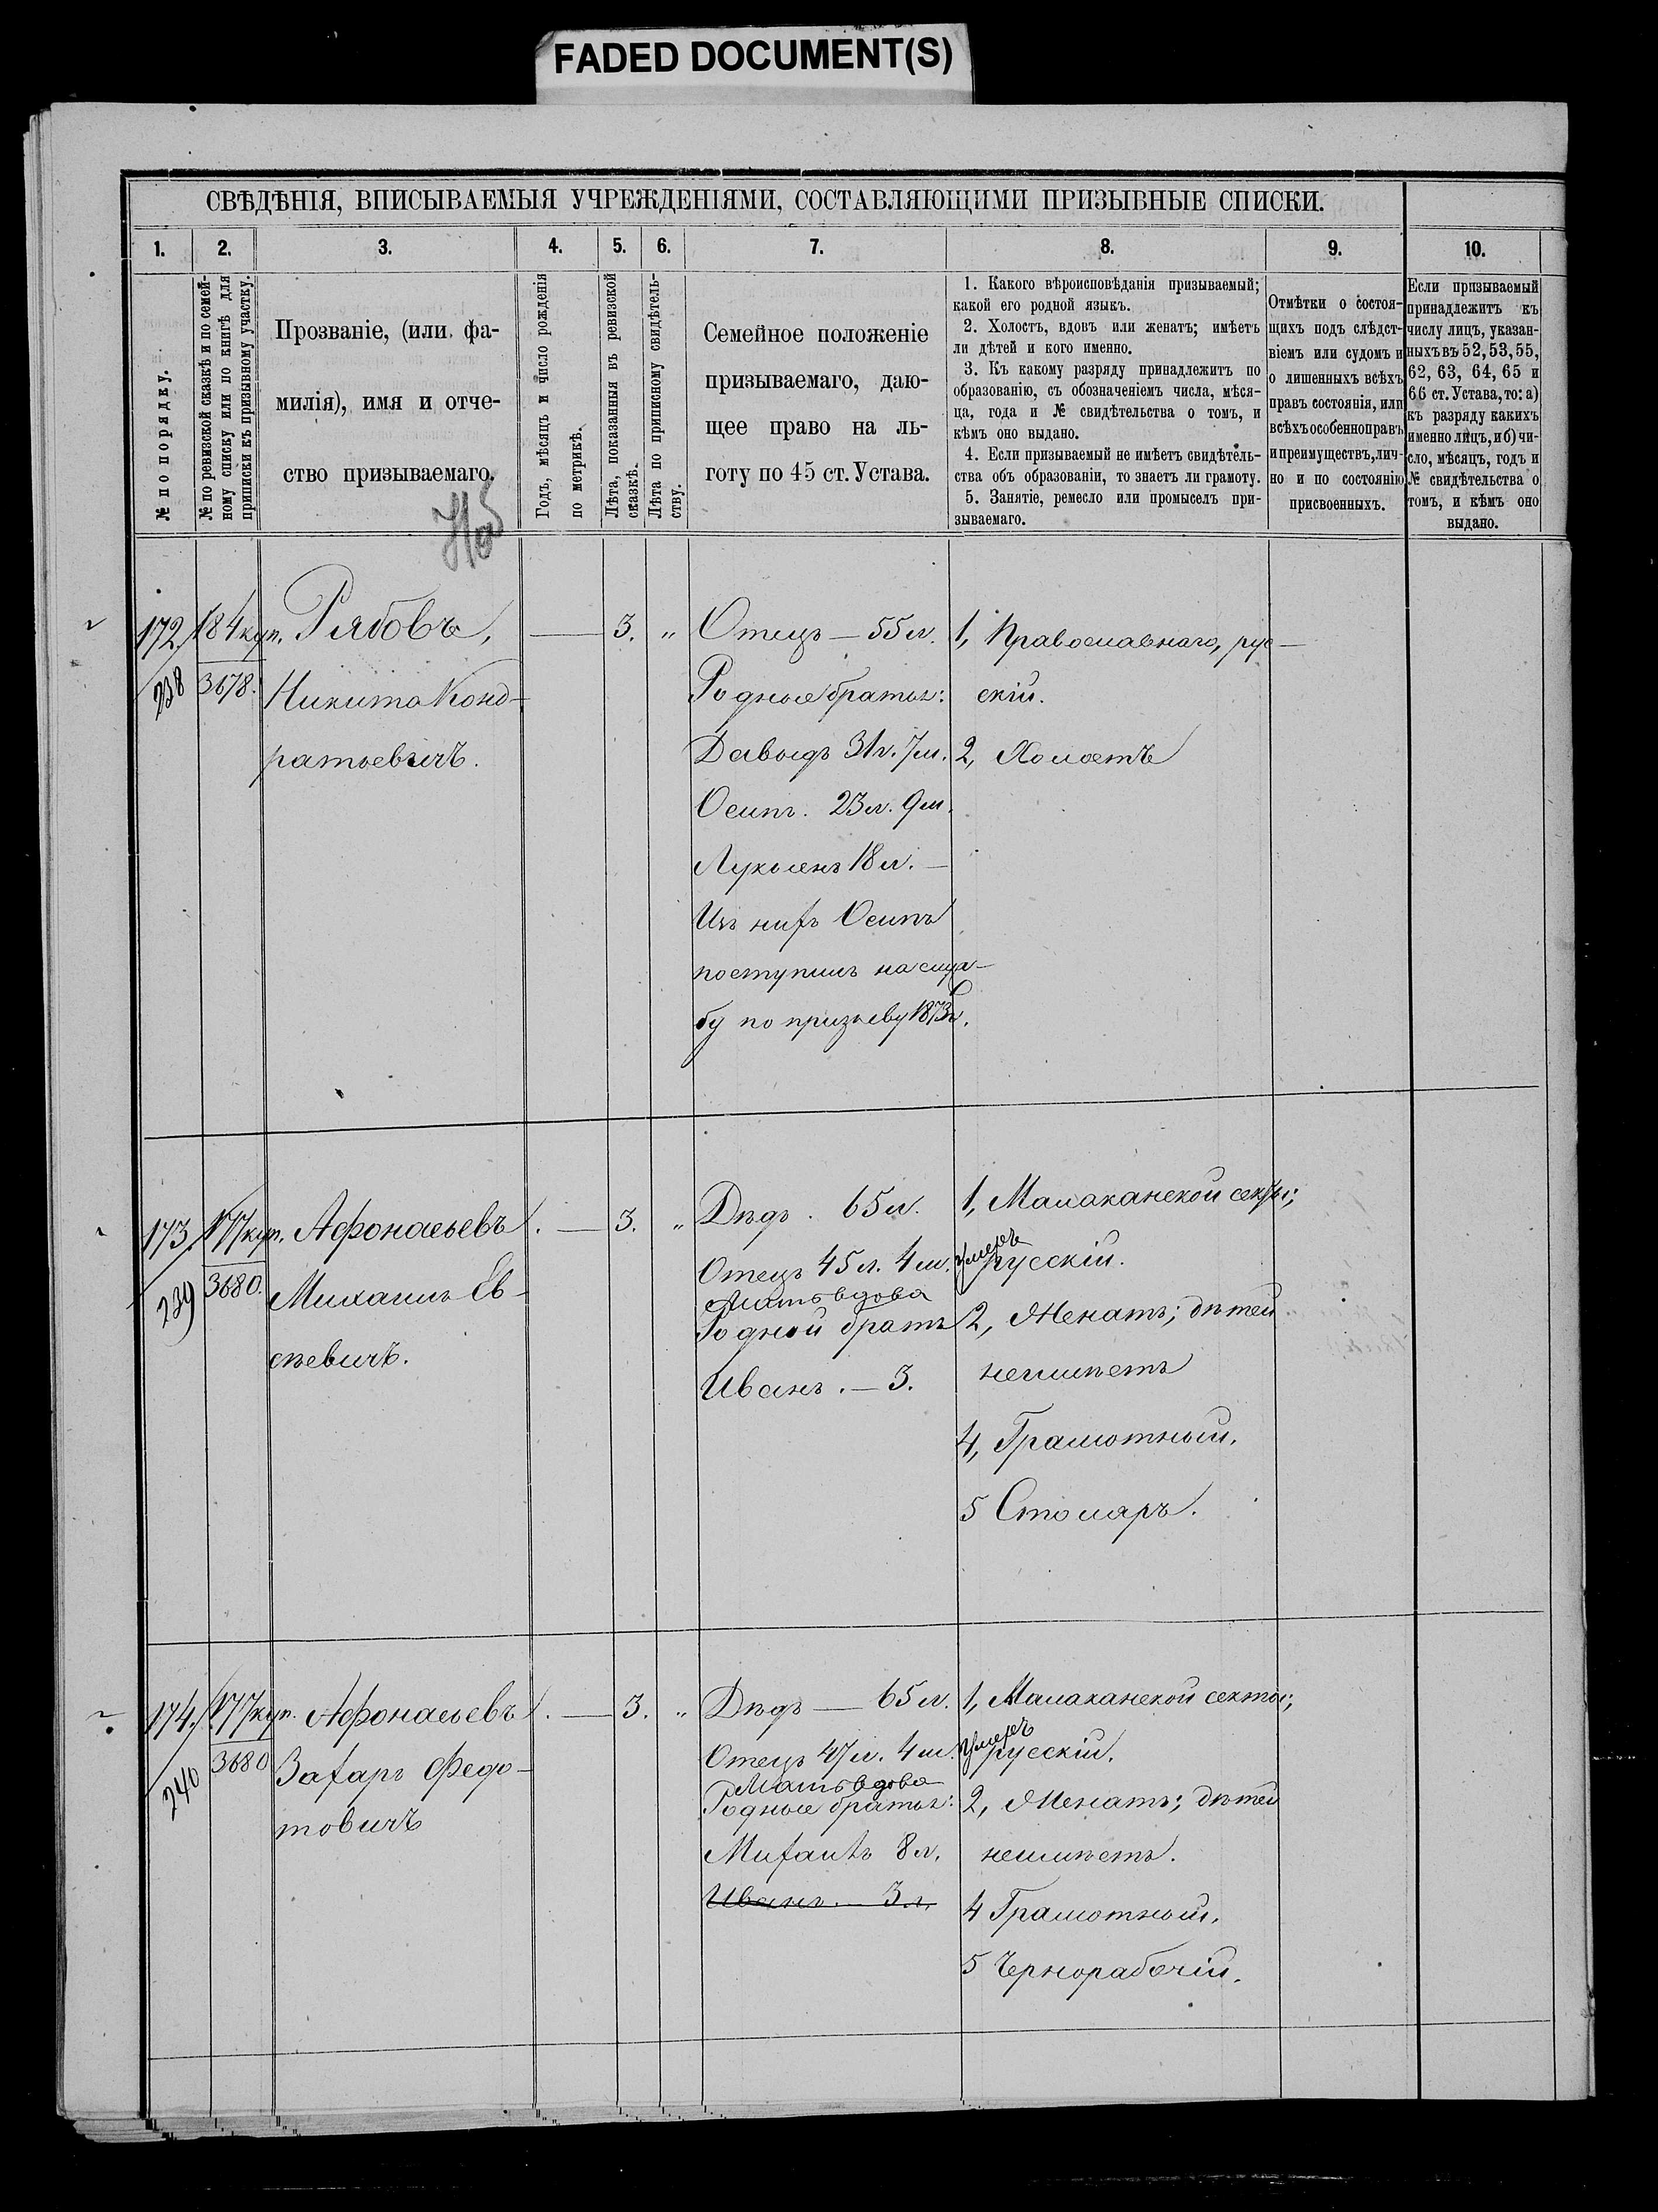 FADED DOCUMENT(S)
СВѢДѢНІЯ, ВПИСЫВАЕМЫЯ УЧРЕЖДЕНІЯМИ, СОСТАВЛЯЮЩИМИ ПРИЗЫВНЫЕ СПИСКИ.
1. 2. 3. 4. 5. 6. 7. 8. 9. 10.
№ по порядку.
№ по ревизской сказкѣ и по семей-
ному списку или по книгѣ для
приписки къ призывному участку.
Прозваніе, (или фа-
милія), имя и отче-
ство призываемаго.
Годъ, мѣсяцъ и число рожденія
по метрикѣ.
Лѣта, показанныя въ ревизской
сказкѣ.
Лѣта по приписному свидѣтель-
ству.
Семейное положеніе
призываемаго, даю-
щее право на ль-
готу по 45 ст. Устава.
1. Какого вѣроисповѣданія призываемый;
какой его родной языкъ.
2. Холостъ, вдовъ или женатъ; имѣетъ
ли дѣтей и кого именно.
3. Къ какому разряду принадлежитъ по
образованію, съ обозначеніемъ числа, мѣся-
ца, года и № свидѣтельства о томъ, и
кѣмъ оно выдано.
4. Если призываемый не имѣетъ свидѣтель-
ства объ образованіи, то знаетъ ли грамоту.
5. Занятіе, ремесло или промыселъ при-
зываемаго.
Отмѣтки о состоя-
щихъ подъ слѣдст-
віемъ или судомъ и
о лишенныхъ всѣхъ
правъ состоянія, или
всѣхъ особенно правъ
и преимуществъ, лич-
но и по состоянію
присвоенныхъ.
Если призываемый
принадлежитъ къ
числу лицъ, указан-
ныхъ въ 52, 53, 55,
62, 63, 64, 65 и
66 ст. Устава, то: а)
къ разряду какихъ
именно лицъ, и б) чи-
сло, мѣсяцъ, годъ и
№ свидѣтельства о
томъ, и кѣмъ оно
выдано.
172.
238
184 куп.
3678.
Рябовъ,
Никита Конд-
ратьевичъ.
— 3. "
Отецъ — 55 л.
Родные братья:
Давыдъ 31 г. 7 м.
Осипъ. 23 л. 9 м.
Лукьянъ 18 л. —
Изъ нихъ Осипъ
поступилъ на служ-
бу по призыву 1873 г.
1, Православнаго, рус-
скій.
2, Холостъ
173.
239
177 куп.
3680.
Афонасьевъ.
Михаилъ Ев-
сѣевичъ.
— 3. "
Дѣдъ. 65 л.
Отецъ 45 л. 4 м. умеръ
Мать вдова
Родной братъ
Иванъ. — 3.
1, Малаканской секты;
русскій.
2, Женатъ; дѣтей
неимѣетъ
4, Грамотный.
5 Столяръ.
174.
240
177 куп.
3680
Афонасьевъ.
Захаръ Федо-
товичъ
— 3. "
Дѣдъ — 65 л.
Отецъ 47 л. 4 м. умеръ
Мать вдова
Родные братья:
Михаилъ 8 л.
Иванъ. — 3 г.
1, Малаканской секты;
русскій.
2, Женатъ; дѣтей
неимѣетъ.
4 Грамотный.
5 Чернорабочій.